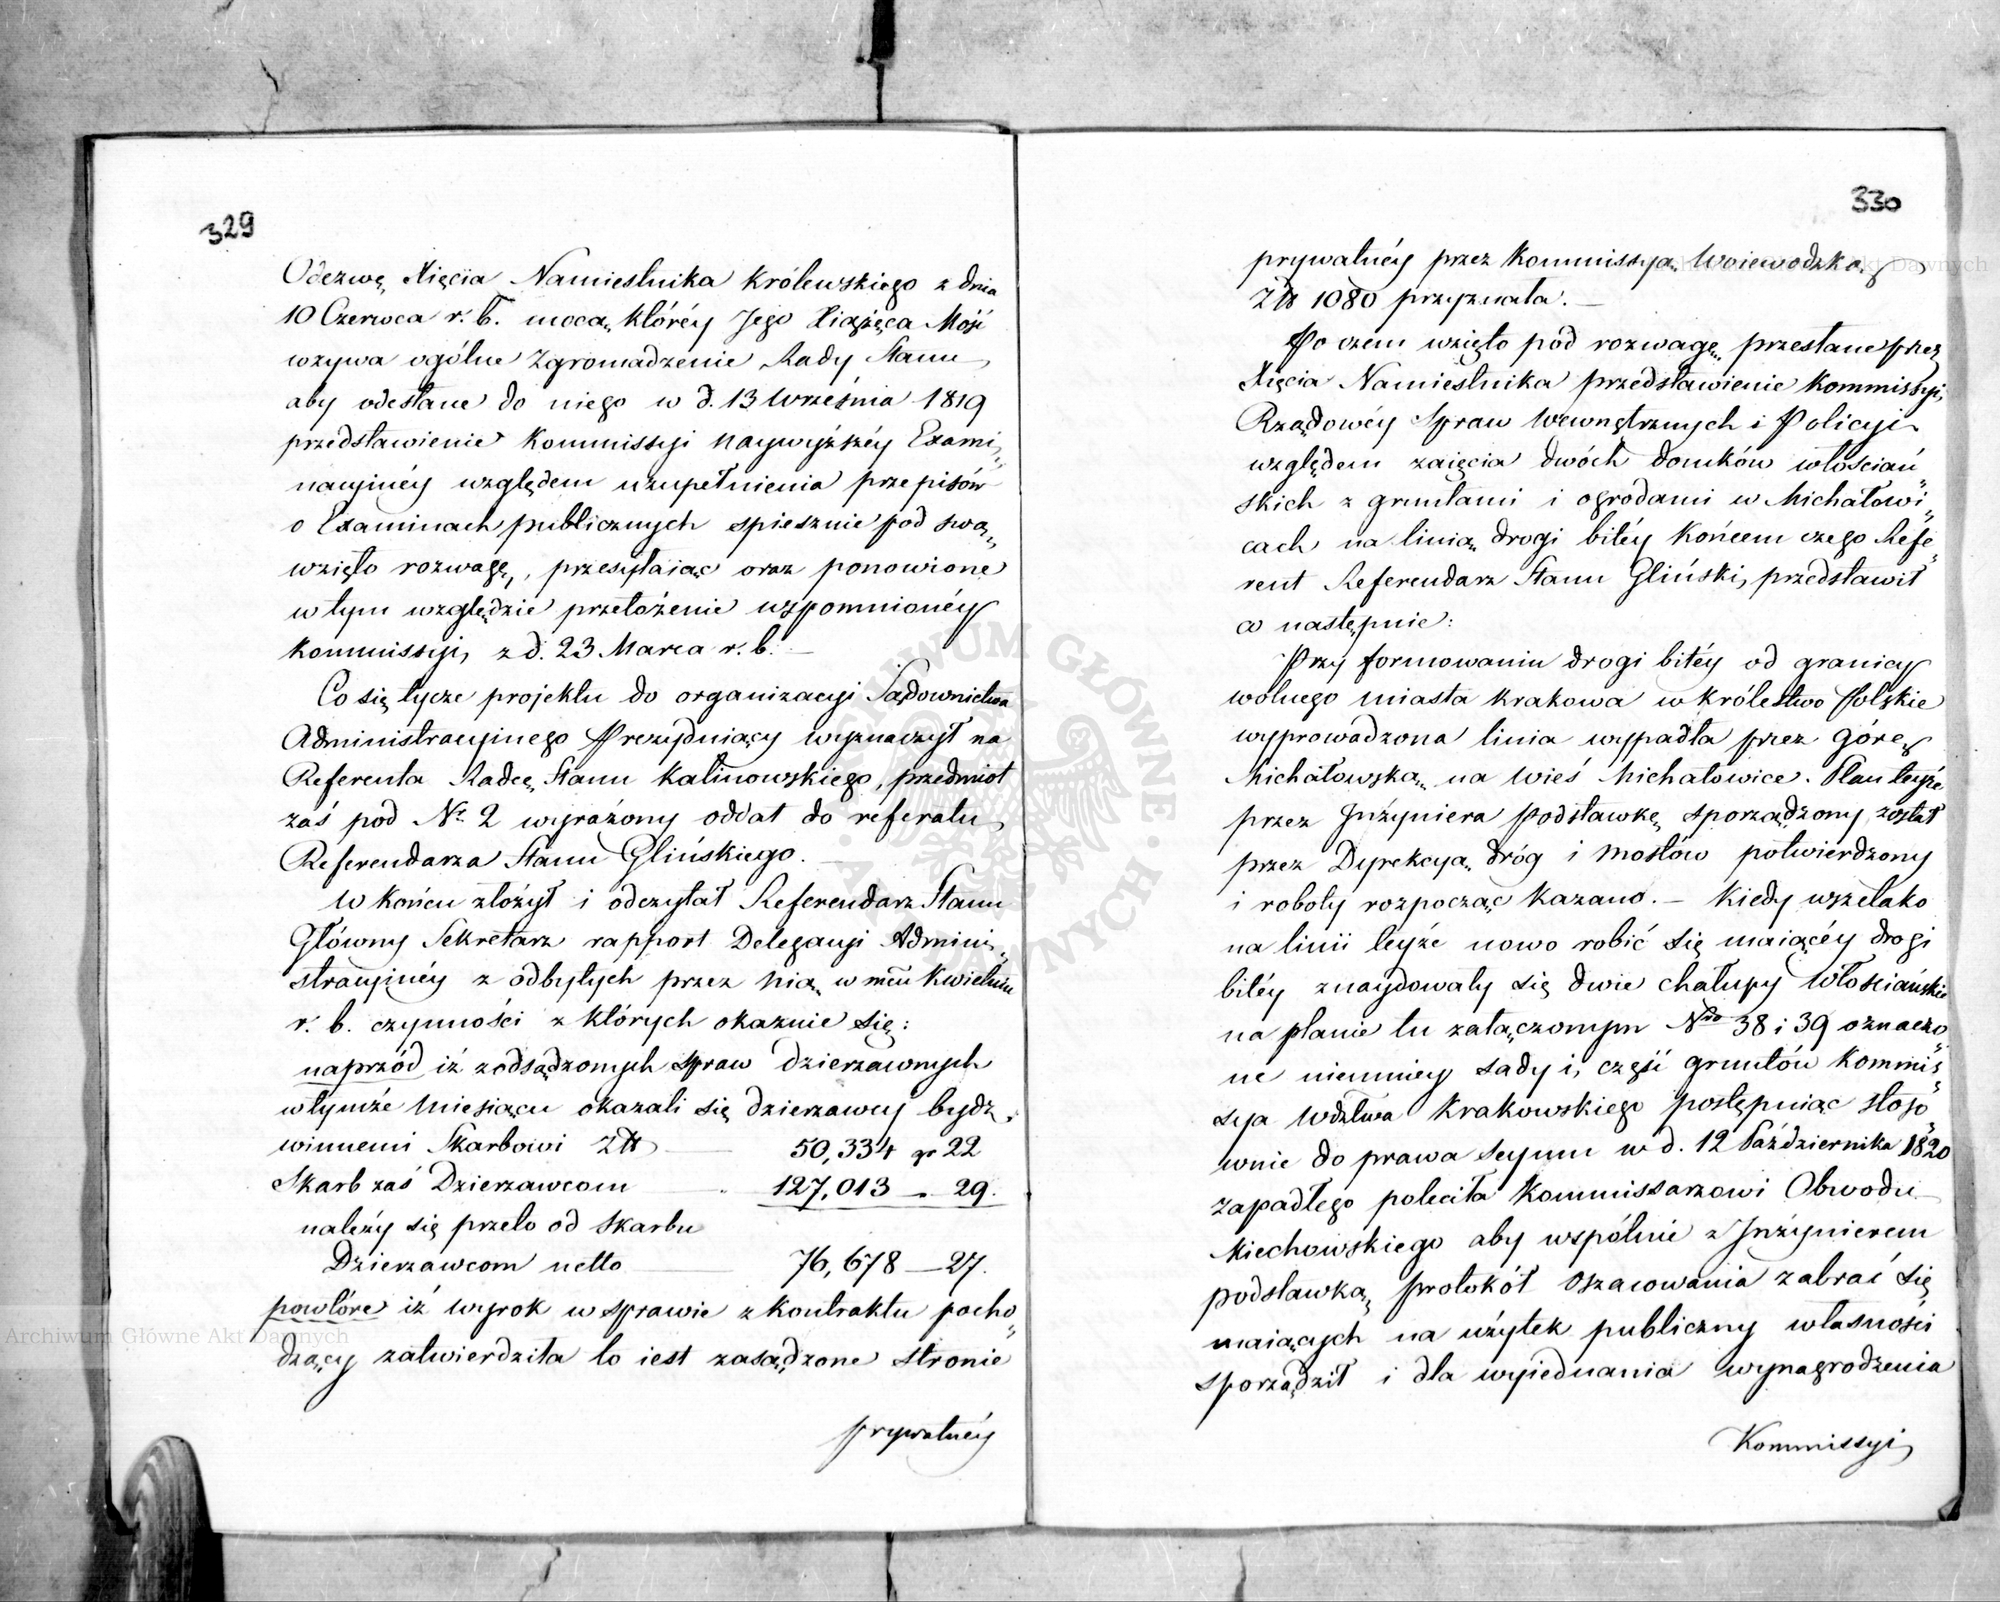 329
Odezwę Xięcia Namiestnika Królewskiego z dnia
10 Czerwca r. b. mocą któréy Jego Xiążęca Mość
wzywa ogólne Zgromadzenie Rady Stanu
aby odesłane do niego w d. 13 Września 1819
przedstawienie Kommissyi naywyższéy Exami„
nacyinéy względem uzupełnienia przepisów
o Examinach publicznych spiesznie pod swą„
wzięło rozwagę, przesyłaiąc oraz ponowione
w tym względzie przełożenie wspomnionéy
Kommissyi, z d. 23 Marca r. b. —
Co się tycze projektu do organizacyi Sądownictwa
Administracyinego Prezyduiący wyznaczył na
Referenta Radcę Stanu Kalinowskiego, przedmiot
zaś pod No. 2 wyrażony oddał do referatu
Referendarza Stanu Glińskiego. —
W końcu złożył i odczytał Referendarz Stanu
Główny Sekretarz rapport Delegacyi Admini„
stracyinéy z odbytych przez nią w mcu Kwietniu
r. b. czynności z których okazuie się:
naprzód iż z odsądzonych spraw dzierzawnych
w tymże miesiącu okazali się dzierzawcy bydz
winnemi Skarbowi Zł — 50,334 gr 22
Skarb zaś Dzierzawcom — 127,013 — 29.
należy się przeto od Skarbu
Dzierzawcom netto — 76,678 — 27.
powtóre iż wyrok w sprawie z kontraktu pocho„
dzący zatwierdziła to iest zasądzone stronie
prywatnéy
330
prywatnéy przez Kommissyą Woiewodzką
Zł 1080 przyznała. —
Po czem wzięto pod rozwagę przesłane przez
Xięcia Namiestnika przedstawienie Kommissyi
Rządowéy Spraw Wewnętrznych i Policyi
względem zaięcia dwóch domków włościań„
skich z gruntami i ogrodami w Michałowi„
cach na linią drogi bitéy końcem czego Refe„
rent Referendarz Stanu Gliński, przedstawił
co następnie:
Przy formowaniu drogi bitéy od granicy
wolnego miasta Krakowa w Królestwo Polskie
wyprowadzona linia wypadła przez górę
Michałowską na wieś Michałowice. Plan teyże
przez Inżyniera Podstawkę sporządzony został
przez Dyrekcyą dróg i mostów potwierdzony
i roboty rozpocząć kazano. — Kiedy wszelako
na linii teyże nowo robić się maiącéy drogi
bitéy znaydowały się dwie chałupy Włościańskie
na planie tu załączonym Nro 38 i 39 oznaczo„
ne niemniey sady i część gruntów Kommis„
sya Wdztwa Krakowskiego postępuiąc stoso„
wnie do prawa Seymu w d. 12 Października 1820
zapadłego poleciła Kommissarzowi Obwodu
Miechowskiego aby wspólnie z Inżynierem
podstawką protokół oszacowania zabrać się
maiących na użytek publiczny własności
sporządził i dla wyiednania wynagrodzenia
Kommissyi
Archiwum Główne Akt Dawnych